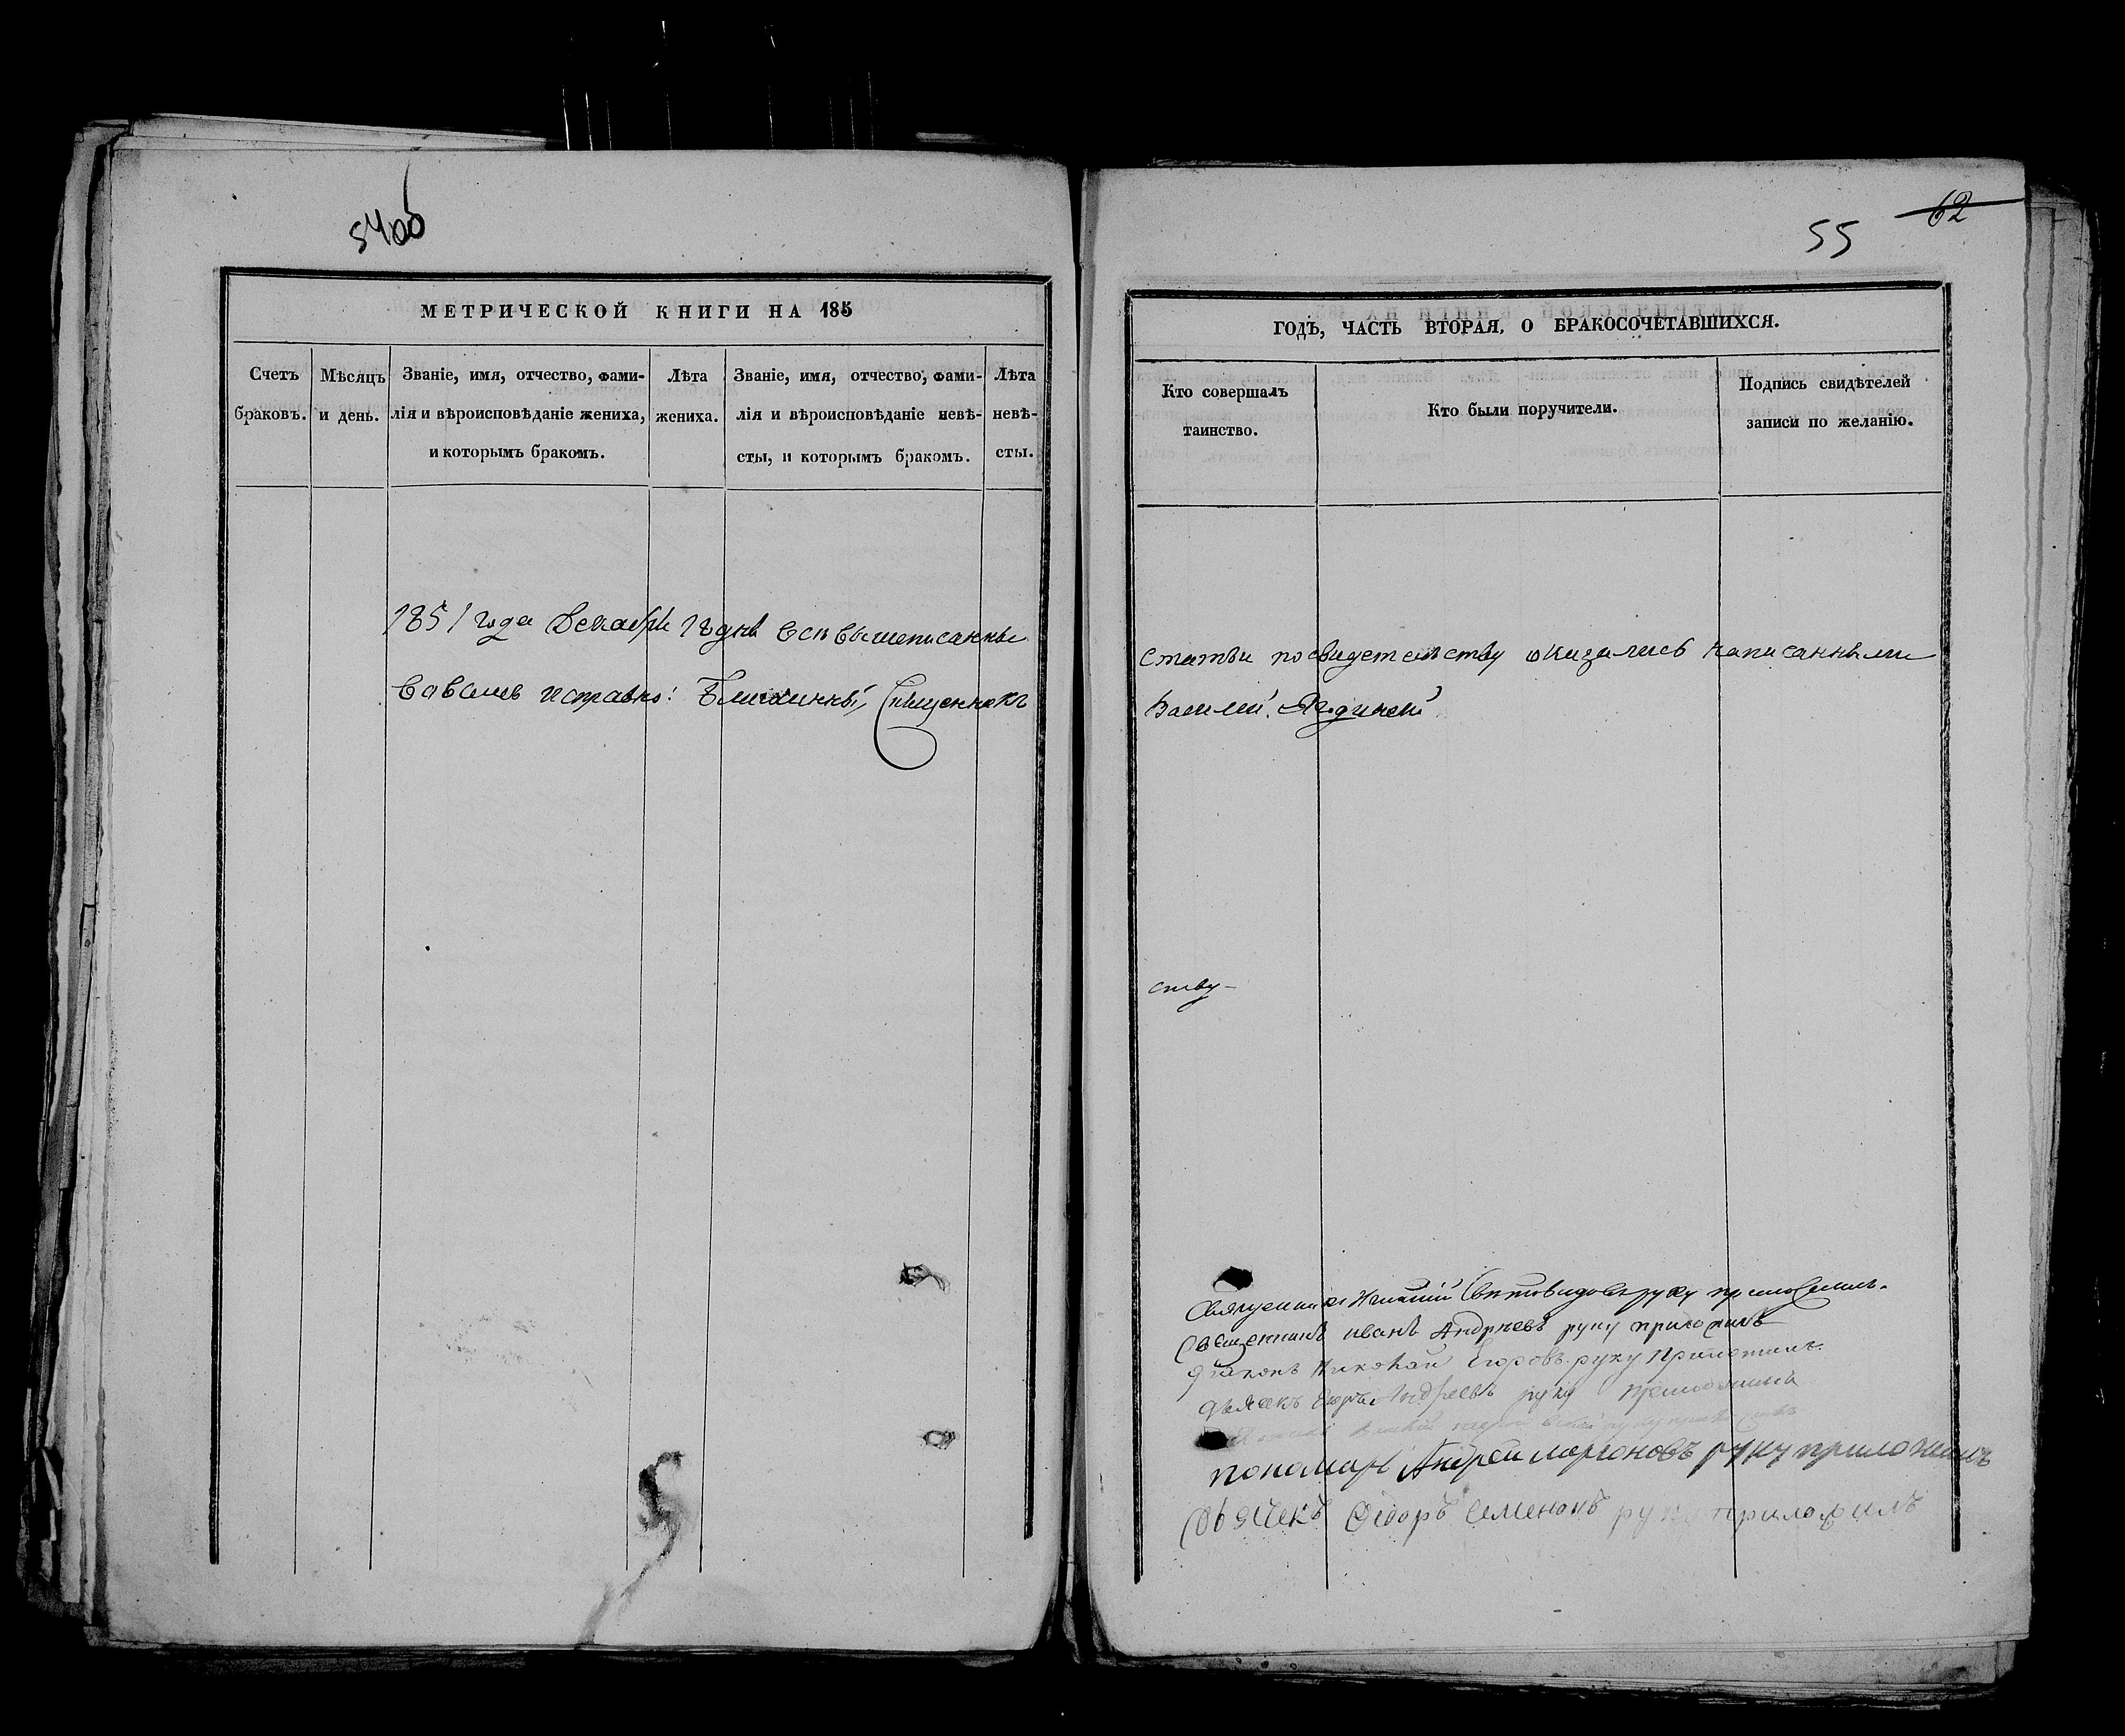 54об
МЕТРИЧЕСКОЙ КНИГИ НА 185
Счетъ браковъ.
Мѣсяцъ и день.
Званіе, имя, отчество, фами-
лія и вѣроисповѣданіе жениха,
и которымъ бракомъ.
Лѣта
жениха.
Званіе, имя, отчество, фами-
лія и вѣроисповѣданіе невѣ-
сты, и которымъ бракомъ.
Лѣта
невѣ-
сты.
1851 года Декабря дня всѣ вышеписанные
исправно: Священникъ
62
55
ГОДЪ, ЧАСТЬ ВТОРАЯ, О БРАКОСОЧЕТАВШИХСЯ.
Кто совершалъ
таинство.
Кто были поручители.
Подпись свидѣтелей
записи по желанію.
статьи по свидетельству оказались написанными
Василій
ству-
Священникъ руку приложилъ.
Священникъ иванъ Андреевъ руку приложилъ
діаконъ Николай Егоровъ руку приложилъ.
дьячекъ Андреевъ руку приложилъ
пономарь Андрей ларионовъ руку приложилъ
дьячекъ Федоръ Семеновъ руку приложилъ